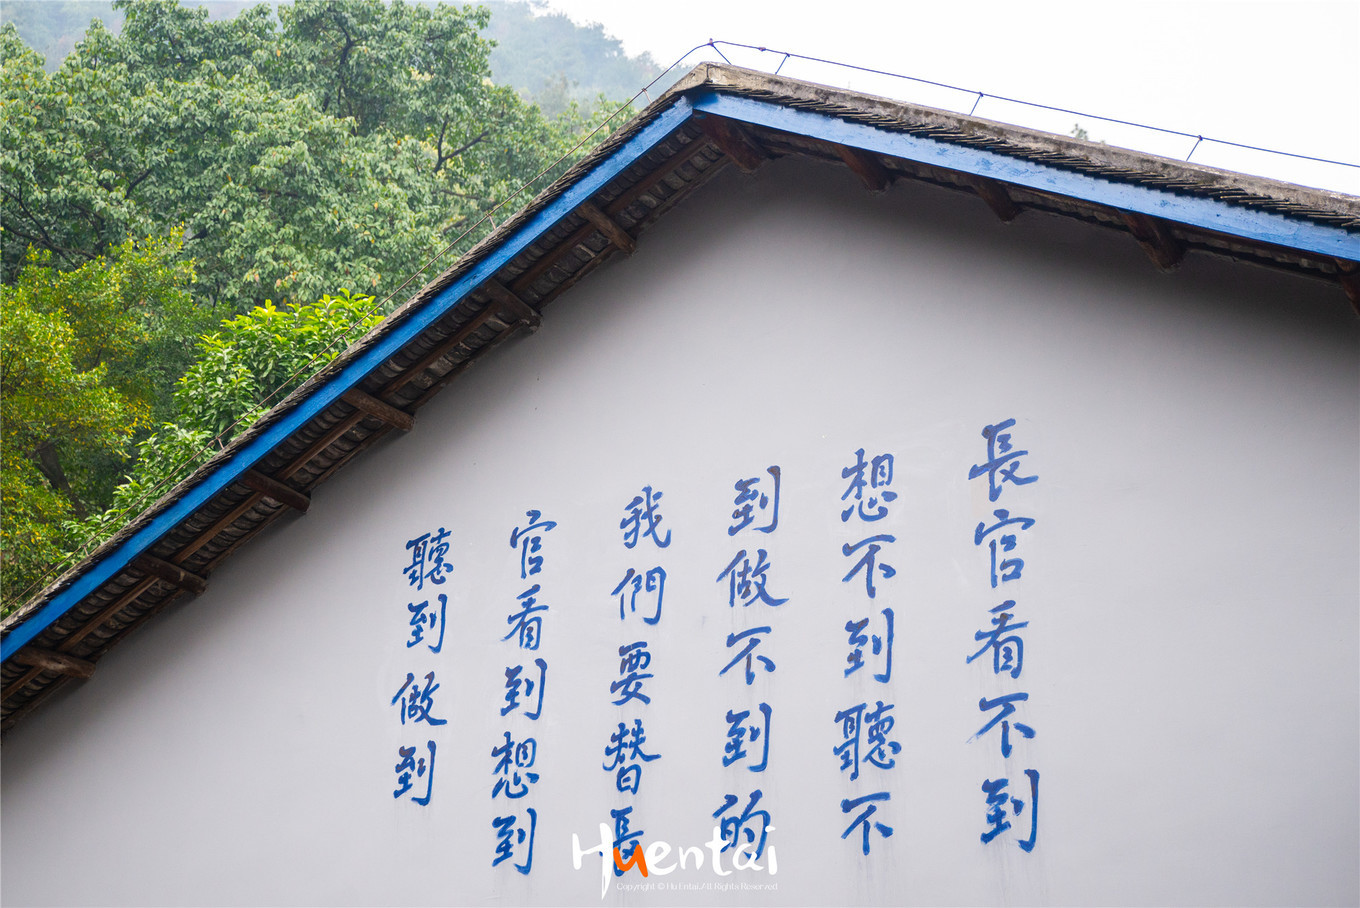 長官看不到
想不到聽不
到做不到的
我們要替長
官看到想到
聽到做到
Huentai
Copyright © Hu Entai.All Rights Reserved